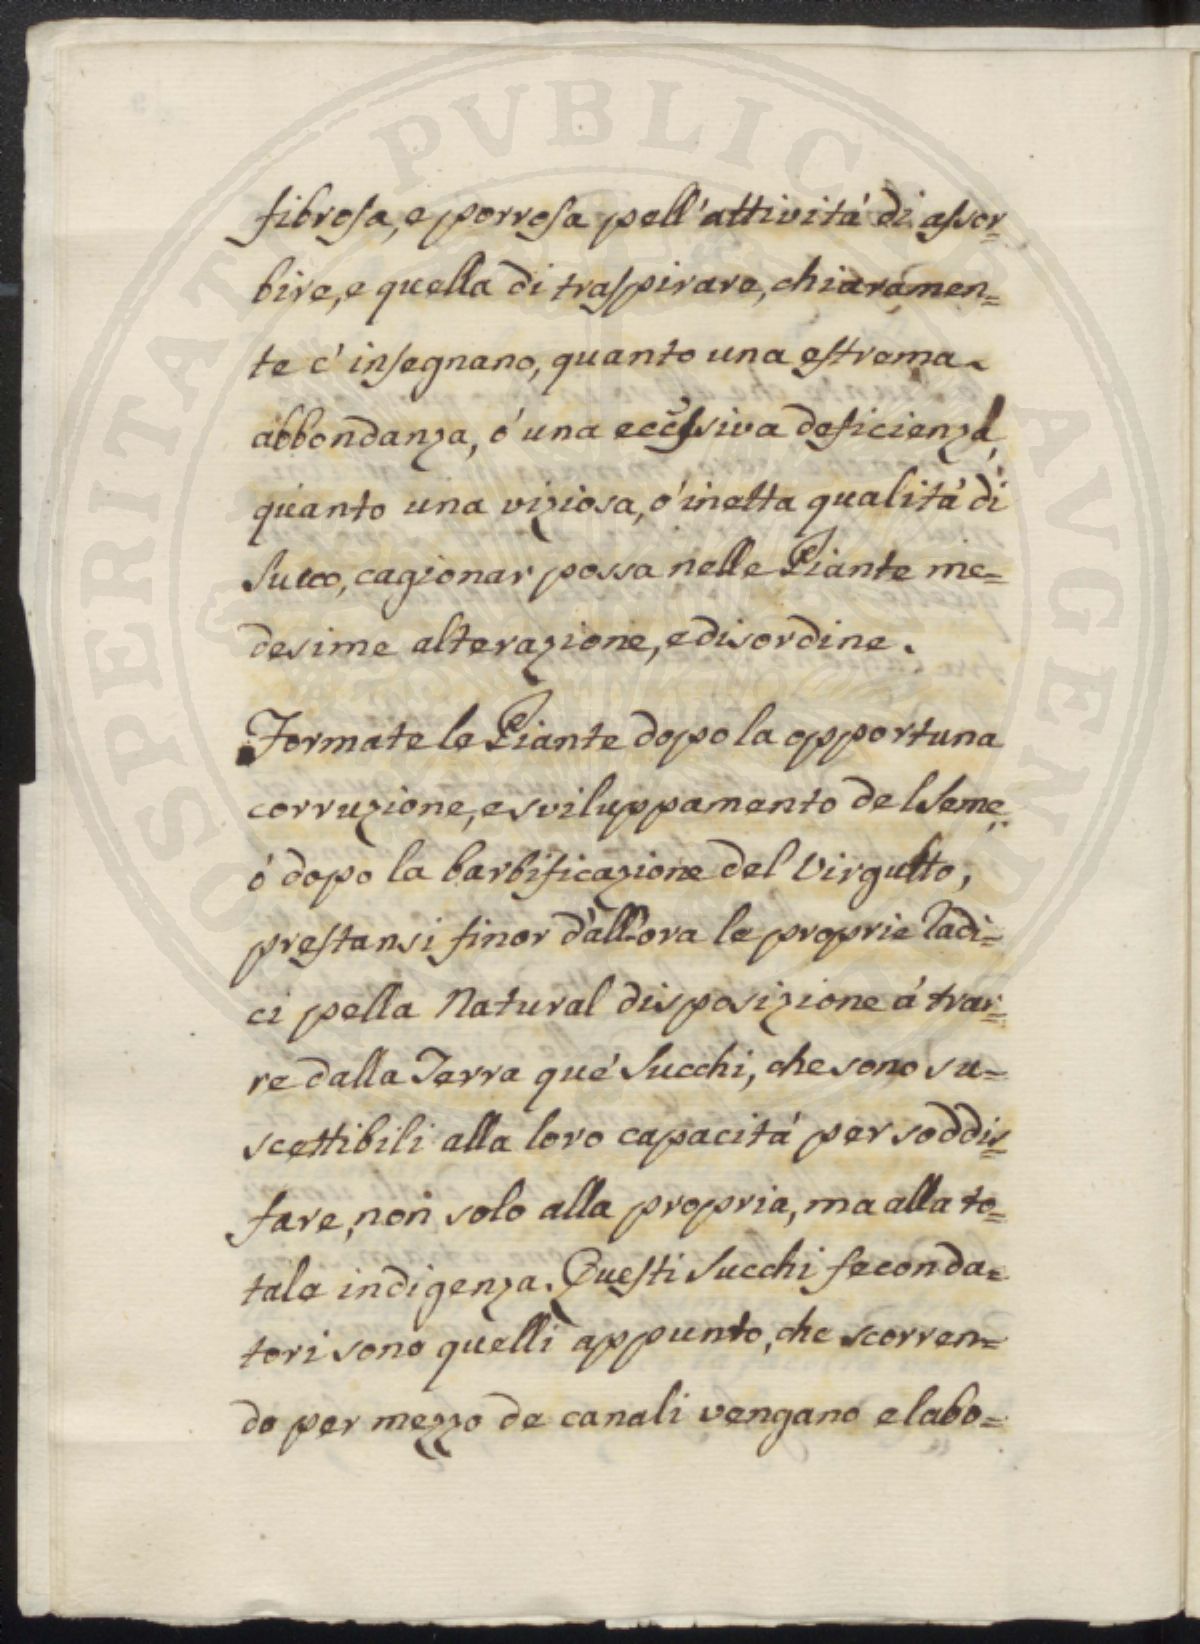 PVBLICAE
PROSPERITATI AVGENDAE
fibrosa, e porrosa pell'attivitá di assor=
bire, e quella di traspirare, chiaramen=
te c'insegnano, quanto una estrema
abbondanza, ó una eccessiva deficienza,
quanto una viziosa, ó inetta qualitá di
Succo, cagionar possa nelle Piante me=
desime alterazione, e disordine.
Formate le Piante dopo la opportuna
corruzione, e sviluppamento del Seme,
ó dopo la barbificazione del Virgulto,
prestansi finor d'all'ora le proprie Radi=
ci pella Natural disposizione á trar=
re dalla Terra qué Succhi, che sono su=
scettibili alla loro capacitá per soddis=
fare, non solo alla propria, ma alla to=
tale indigenza. Questi Succhi feconda=
tori sono quelli appunto, che scorren=
do per mezzo de canali vengano elabo=